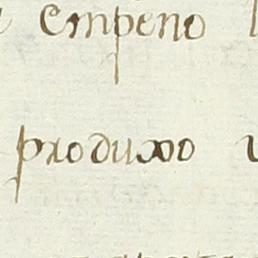 empeno
produxo